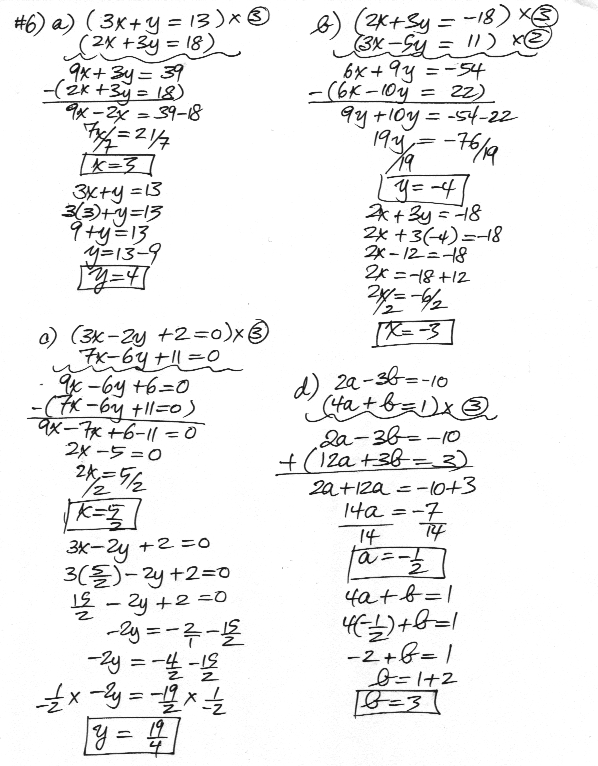 #6) a) (3x + y = 13) × ③
(2x + 3y = 18)
9x + 3y = 39
-(2x + 3y = 18)
9x - 2x = 39 - 18
7x/7 = 21/7
x = 3
3x + y = 13
3(3) + y = 13
9 + y = 13
y = 13 - 9
y = 4
b) (2x + 3y = -18) × ③
(3x - 5y = 11) × ②
6x + 9y = -54
-(6x - 10y = 22)
9y + 10y = -54 - 22
19y/19 = -76/19
y = -4
2x + 3y = -18
2x + 3(-4) = -18
2x - 12 = -18
2x = -18 + 12
2x/2 = -6/2
x = -3
c) (3x - 2y + 2 = 0) × ③
7x - 6y + 11 = 0
9x - 6y + 6 = 0
-(7x - 6y + 11 = 0)
9x - 7x + 6 - 11 = 0
2x - 5 = 0
2x/2 = 5/2
x = 5/2
3x - 2y + 2 = 0
3(5/2) - 2y + 2 = 0
15/2 - 2y + 2 = 0
-2y = -2/1 - 15/2
-2y = -4/2 - 15/2
1/-2 × -2y = -19/2 × 1/-2
y = 19/4
d) 2a - 3b = -10
(4a + b = 1) × ③
2a - 3b = -10
+ (12a + 3b = 3)
2a + 12a = -10 + 3
14a/14 = -7/14
a = -1/2
4a + b = 1
4(-1/2) + b = 1
-2 + b = 1
b = 1 + 2
b = 3